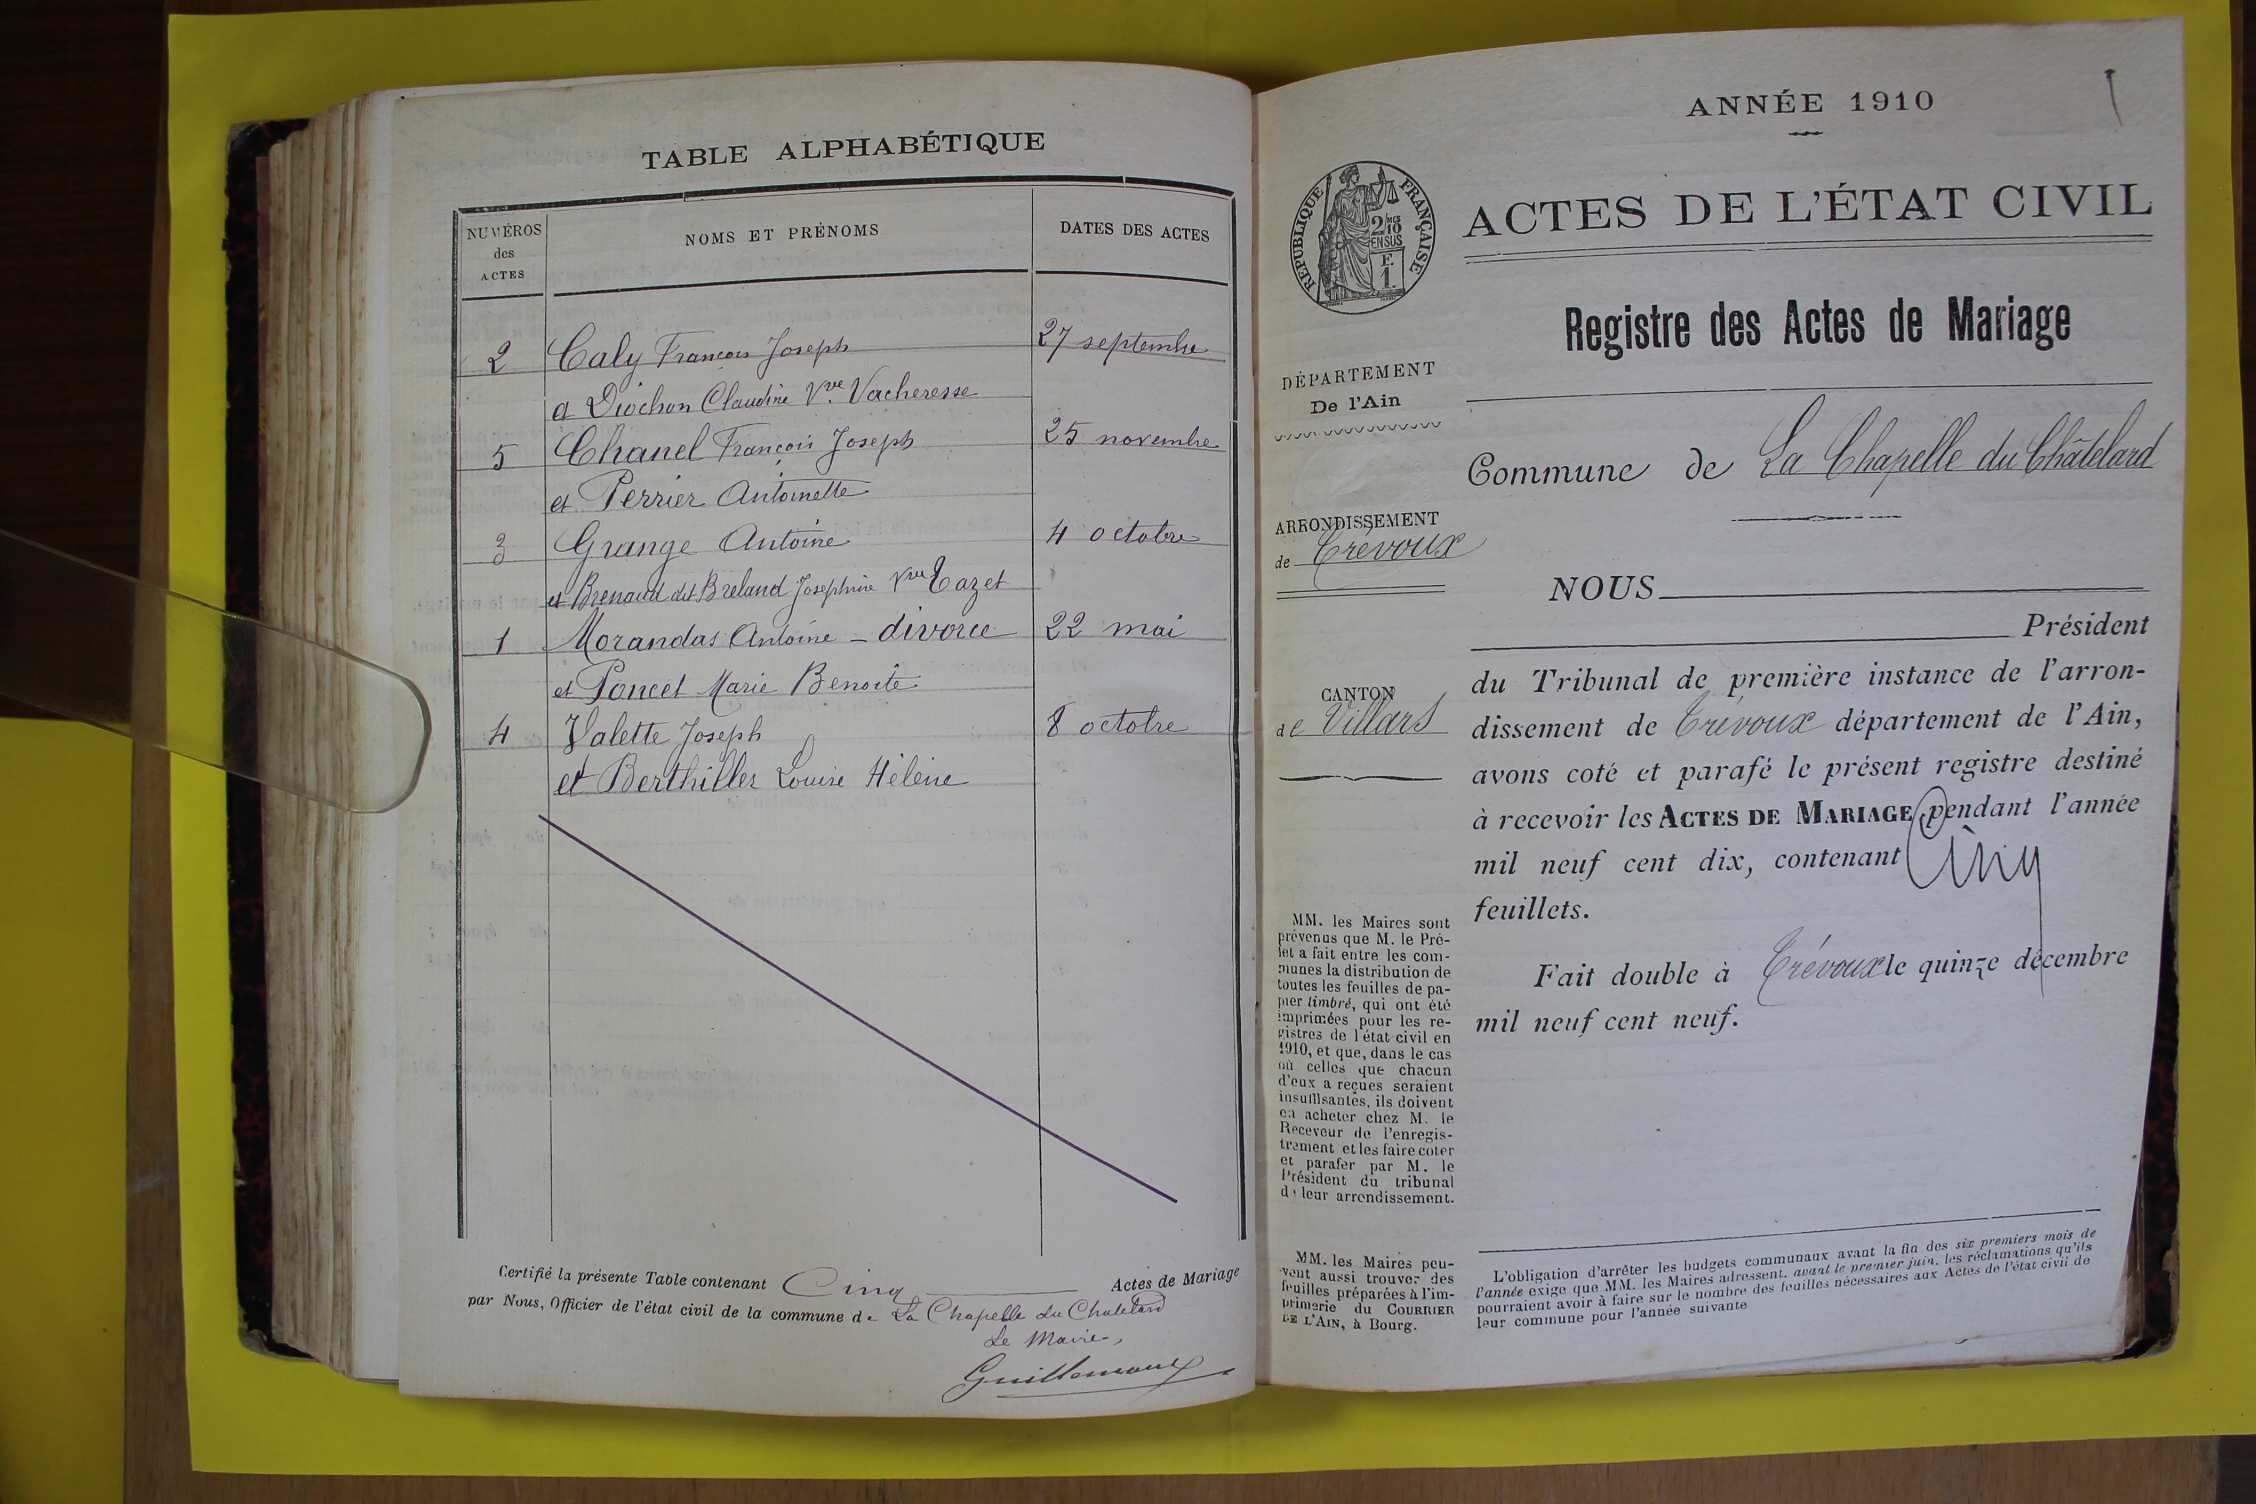 TABLE ALPHABÉTIQUE
NUMÉROS
des
ACTES
NOMS ET PRÉNOMS
DATES DES ACTES
2 Caly François Joseph 27 septembre
et Diochon Claudine Vve Vacheresse
5 Chanel François Joseph 25 novembre
et Perrier Antoinette
3 Grange Antoine 4 octobre
et Brenaud dit Breland Joséphine Vve Cazet
1 Morandas Antoine - divorce 22 mai
et Poncet Marie Benoîte
4 Valette Joseph 8 octobre
et Berthillier Louise Hélène
Certifié la présente Table contenant Cinq Actes de Mariage
par Nous, Officier de l'état civil de la commune de La Chapelle du Chatelard
Le Maire,
ANNÉE 1910
RÉPUBLIQUE FRANÇAISE
2/10
EN SUS
F.
1.
ACTES DE L'ÉTAT CIVIL
Registre des Actes de Mariage
DÉPARTEMENT
De l'Ain
Commune de La Chapelle du Châtelard
ARRONDISSEMENT
de Trévoux
CANTON
de Villars
NOUS
Président
du Tribunal de première instance de l'arron-
dissement de Trévoux département de l'Ain,
avons coté et parafé le présent registre destiné
à recevoir les ACTES DE MARIAGE pendant l'année
mil neuf cent dix, contenant Cinq
feuillets.
Fait double à Trévoux le quinze décembre
mil neuf cent neuf.
MM. les Maires sont
prévenus que M. le Pré-
fet a fait entre les com-
munes la distribution de
toutes les feuilles de pa-
pier timbré, qui ont été
imprimées pour les re-
gistres de l'état civil en
1910, et que, dans le cas
où celles que chacun
d'eux a reçues seraient
insuffisantes, ils doivent
en acheter chez M. le
Receveur de l'enregis-
trement et les faire coter
et parafer par M. le
Président du tribunal
de leur arrondissement.
MM. les Maires peu-
vent aussi trouver des
feuilles préparées à l'im-
primerie du COURRIER
DE L'AIN, à Bourg.
L'obligation d'arrêter les budgets communaux avant la fin des six premiers mois de
l'année exige que MM. les Maires adressent, avant le premier juin, les réclamations qu'ils
pourraient avoir à faire sur le nombre des feuilles nécessaires aux Actes de l'état civil de
leur commune pour l'année suivante